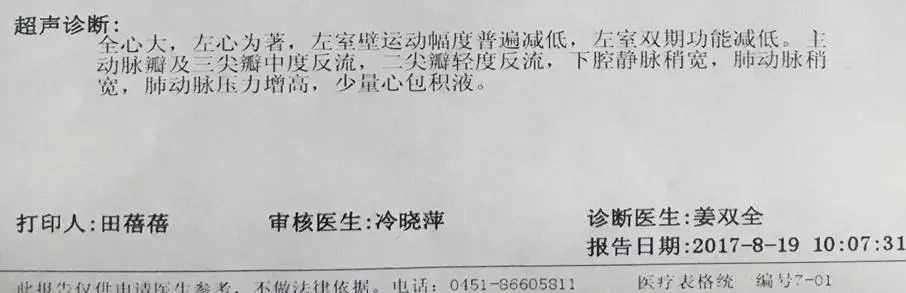 超声诊断:
全心大，左心为著，左室壁运动幅度普遍减低，左室双期功能减低。主
动脉瓣及三尖瓣中度反流，二尖瓣轻度反流，下腔静脉稍宽，肺动脉稍
宽，肺动脉压力增高，少量心包积液。
打印人:田蓓蓓 审核医生:冷晓萍 诊断医生:姜双全
报告日期:2017-8-19 10:07:31
此报告仅供申请医生参考，不做法律依据。电话：0451-86605811 医疗表格统 编号7-01